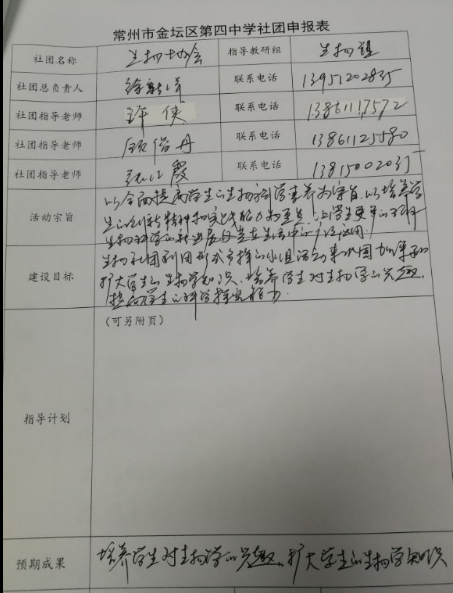 常州市金坛区第四中学社团申报表
社团名称 生物协会 指导教研组 生物组
社团总负责人 联系电话 13951202835
社团指导老师 许侠 联系电话 13861117572
社团指导老师 顾俗丹 联系电话 13861125580
社团指导老师 张江霞 联系电话 13815002035
以全面提高学生的生物科学素养为宗旨,以培养学
活动宗旨 生的创新精神和实践能力为重点,让学生更多的了解
生物科学的新进展及其在生活中的广泛应用
生物社团利用形式多样的小组活动来巩固加深和
建设目标 扩大学生的生物学知识、培养学生对生物学的兴趣,
提高学生的科学探究能力.
(可另附页)
指导计划
预期成果 培养学生对生物学的兴趣、扩大学生的生物学知识